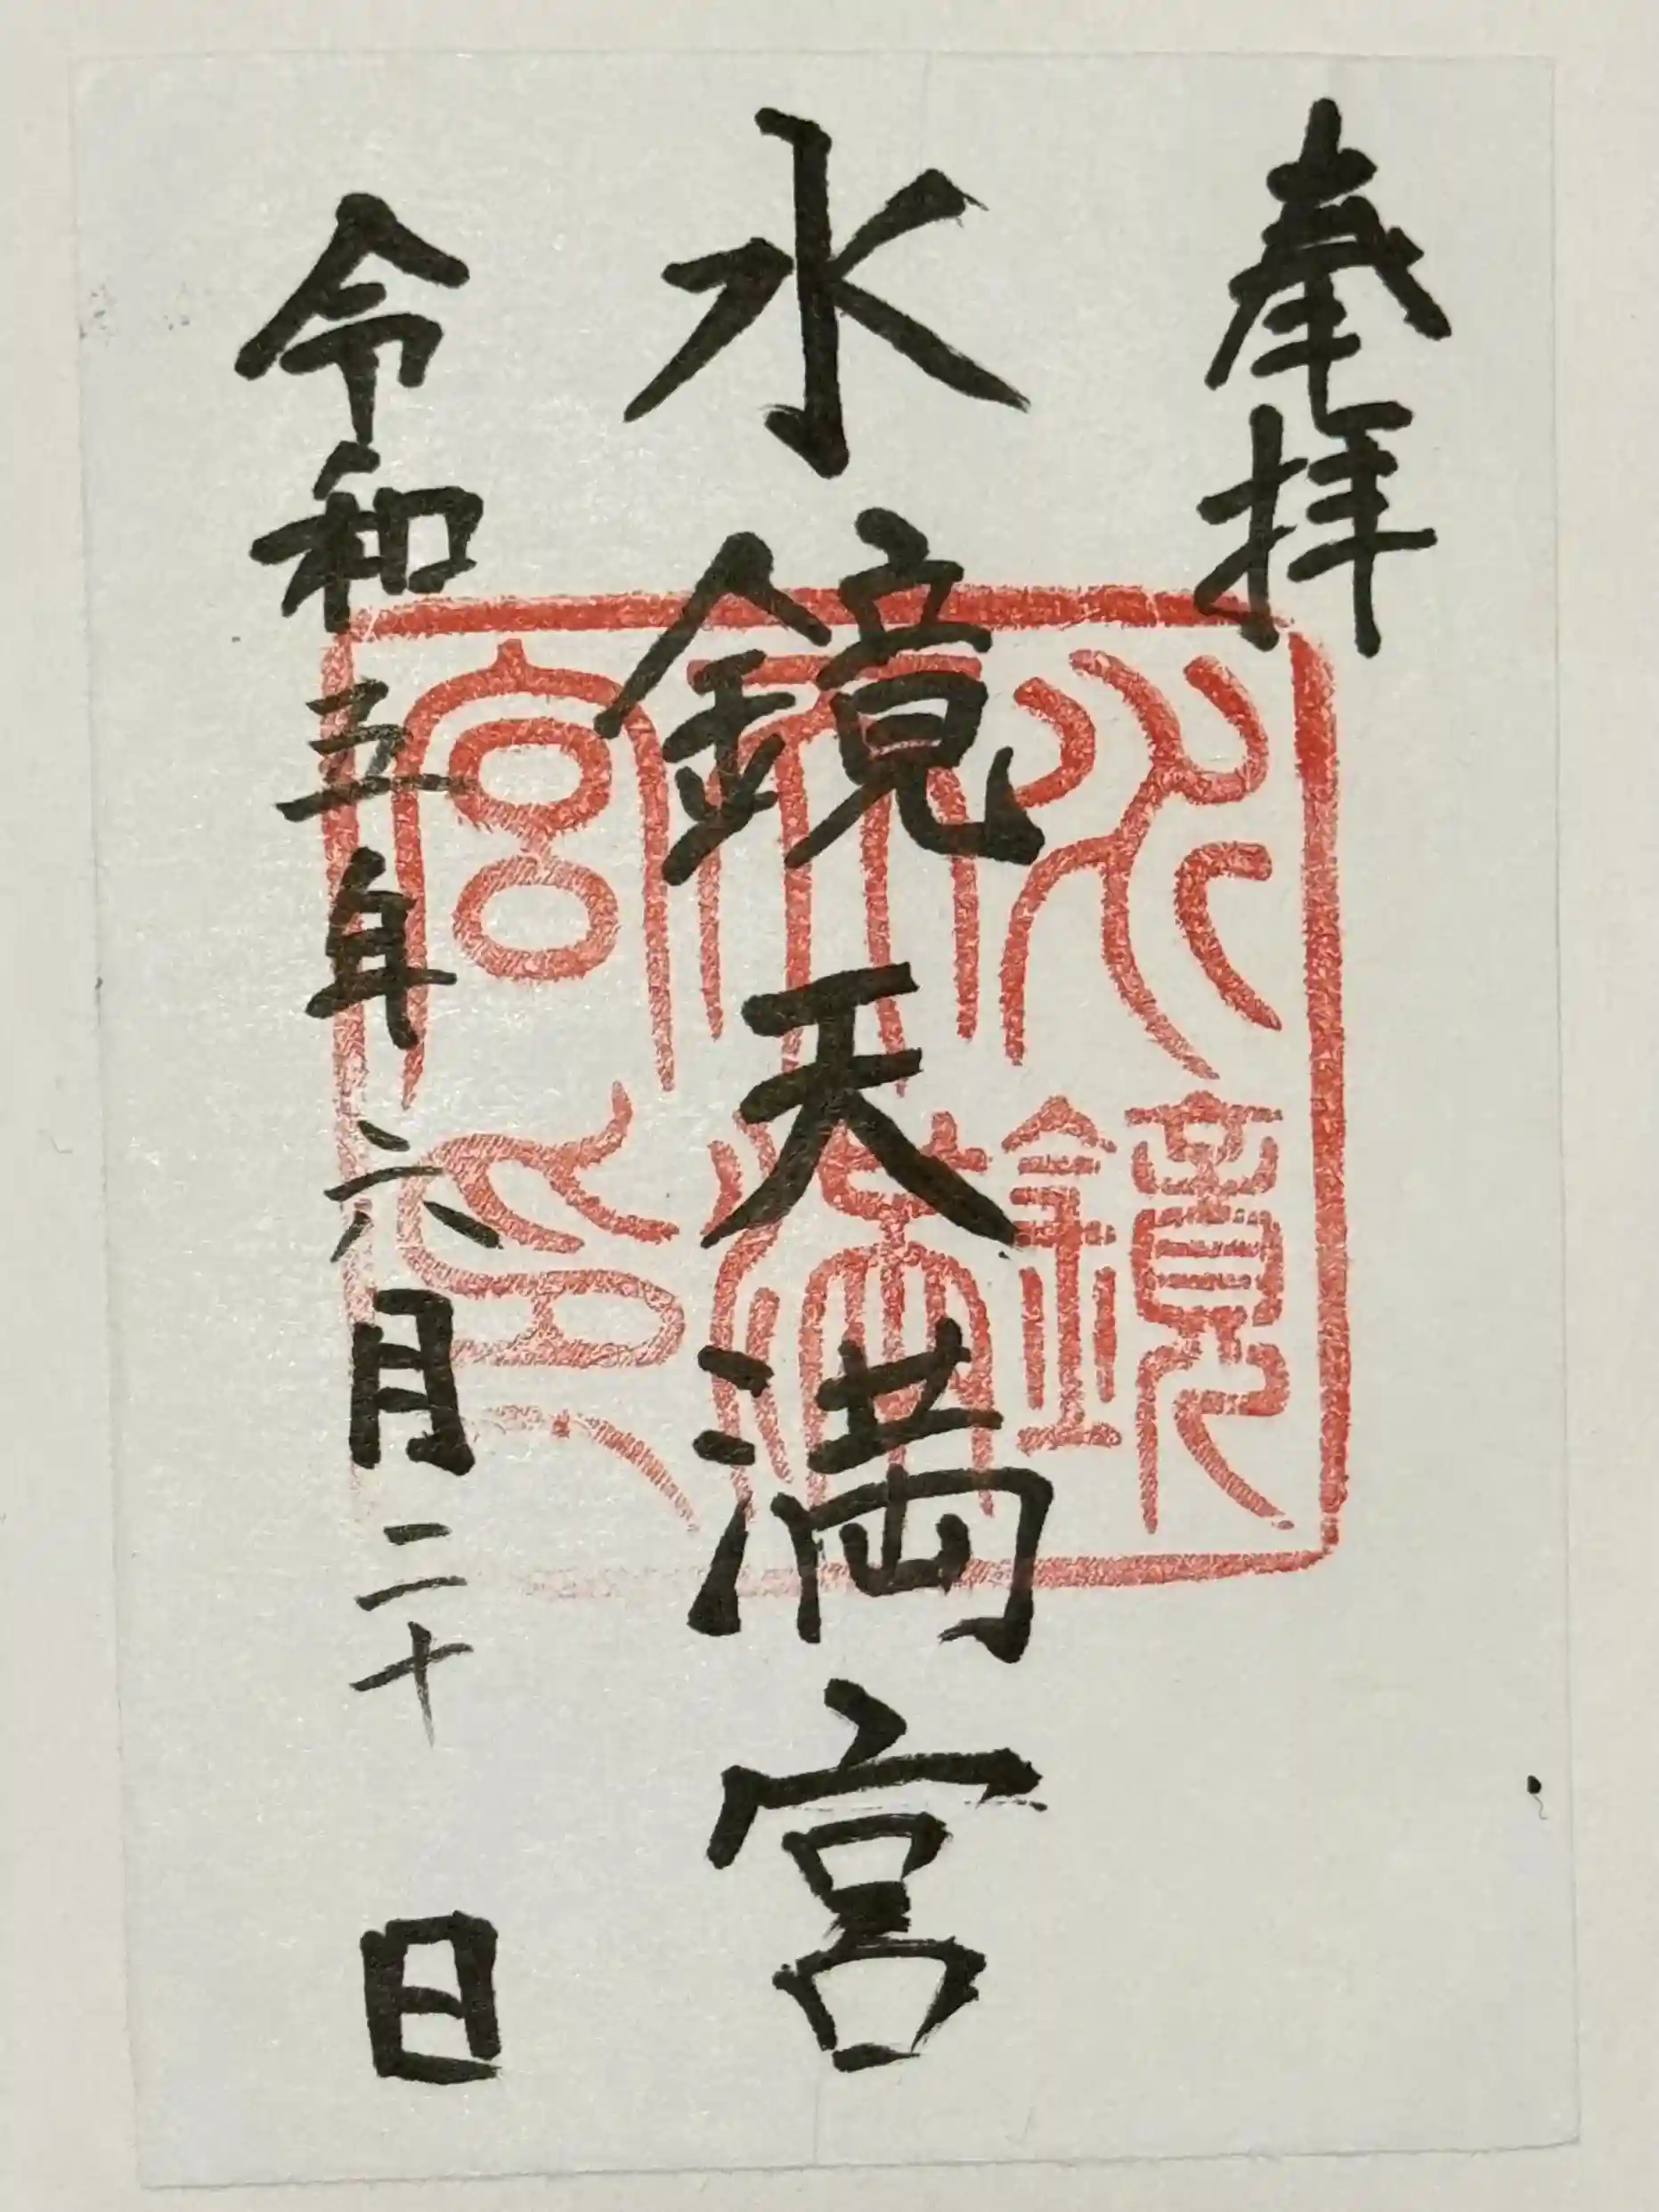 奉拝
水鏡天満宮
令和五年六月二十日
水鏡
天満
宮印